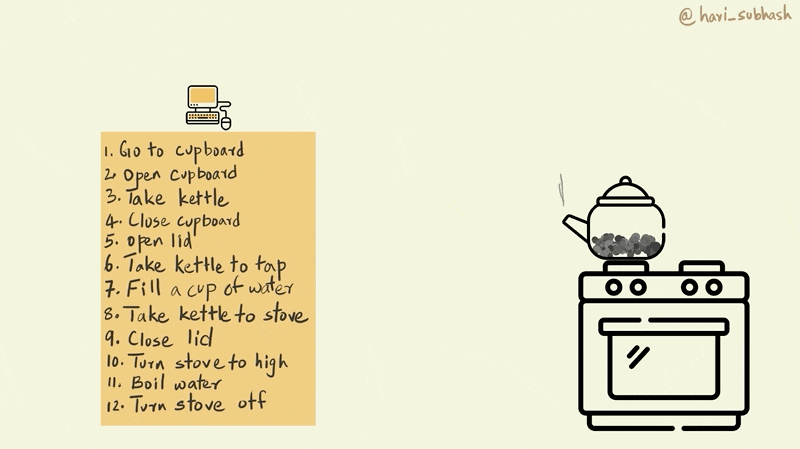 @hari_subhash
1. Go to cupboard
2. Open cupboard
3. Take kettle
4. Close cupboard
5. Open lid
6. Take kettle to tap
7. Fill a cup of water
8. Take kettle to stove
9. Close lid
10. Turn stove to high
11. Boil water
12. Turn stove off